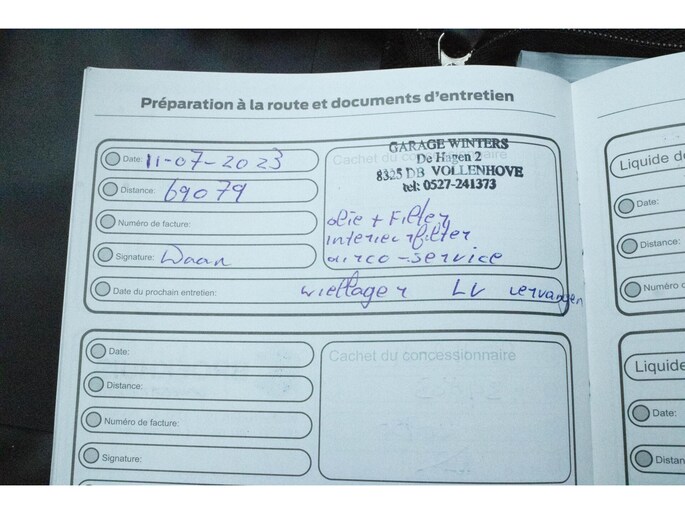 Préparation à la route et documents d'entretien
Date: 11-07-2023
Distance: 69079
Numéro de facture:
Signature: Daan
Cachet du concessionnaire
GARAGE WINTERS
De Hagen 2
8325 DB VOLLENHOVE
tel: 0527-241373
olie + Filter
interieurfilter
airco-service
Date du prochain entretien: wiellager LV vervangen
Date:
Distance:
Numéro de facture:
Signature:
Cachet du concessionnaire
Liquide de
Date:
Distance:
Numéro
Liquide
Date:
Distan